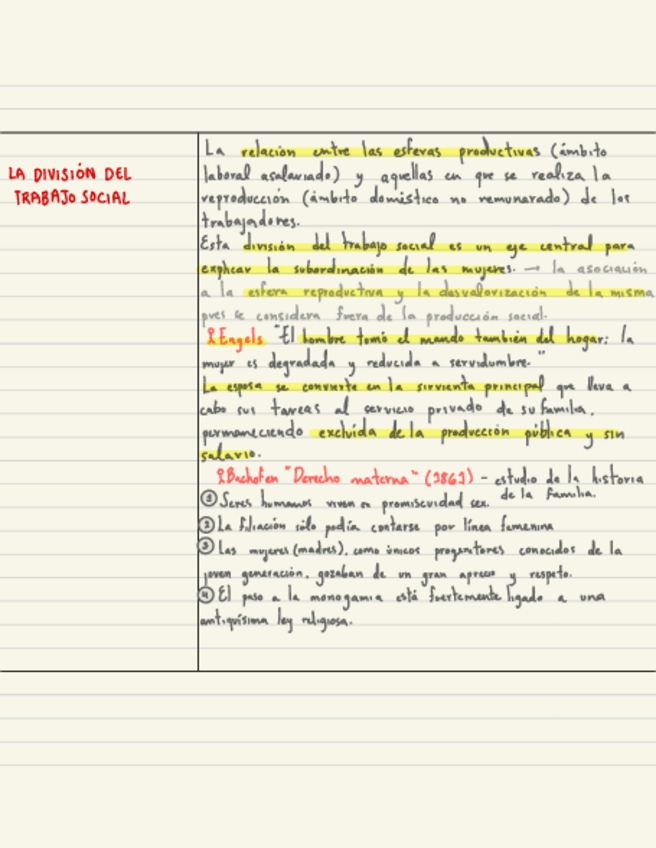 LA DIVISIÓN DEL
TRABAJO SOCIAL
La relación entre las esferas productivas (ámbito
laboral asalariado) y aquellas en que se realiza la
reproducción (ámbito doméstico no remunerado) de los
trabajadores.
Esta división del trabajo social es un eje central para
explicar la subordinación de las mujeres. → la asociación
a la esfera reproductiva y la desvalorización de la misma
pues se considera fuera de la producción social.
Engels "El hombre tomó el mando también del hogar; la
mujer es degradada y reducida a servidumbre."
La esposa se convierte en la sirvienta principal que lleva a
cabo sus tareas al servicio privado de su familia,
permaneciendo excluida de la producción pública y sin
salario.
Bachofen "Derecho materna" (1861) - estudio de la historia
de la familia.
① Seres humanos viven en promiscuidad sex.
② La filiación sólo podía contarse por línea femenina
③ Las mujeres (madres), como únicos progenitores conocidos de la
joven generación, gozaban de un gran aprecio y respeto.
④ El paso a la monogamia está fuertemente ligado a una
antiquísima ley religiosa.